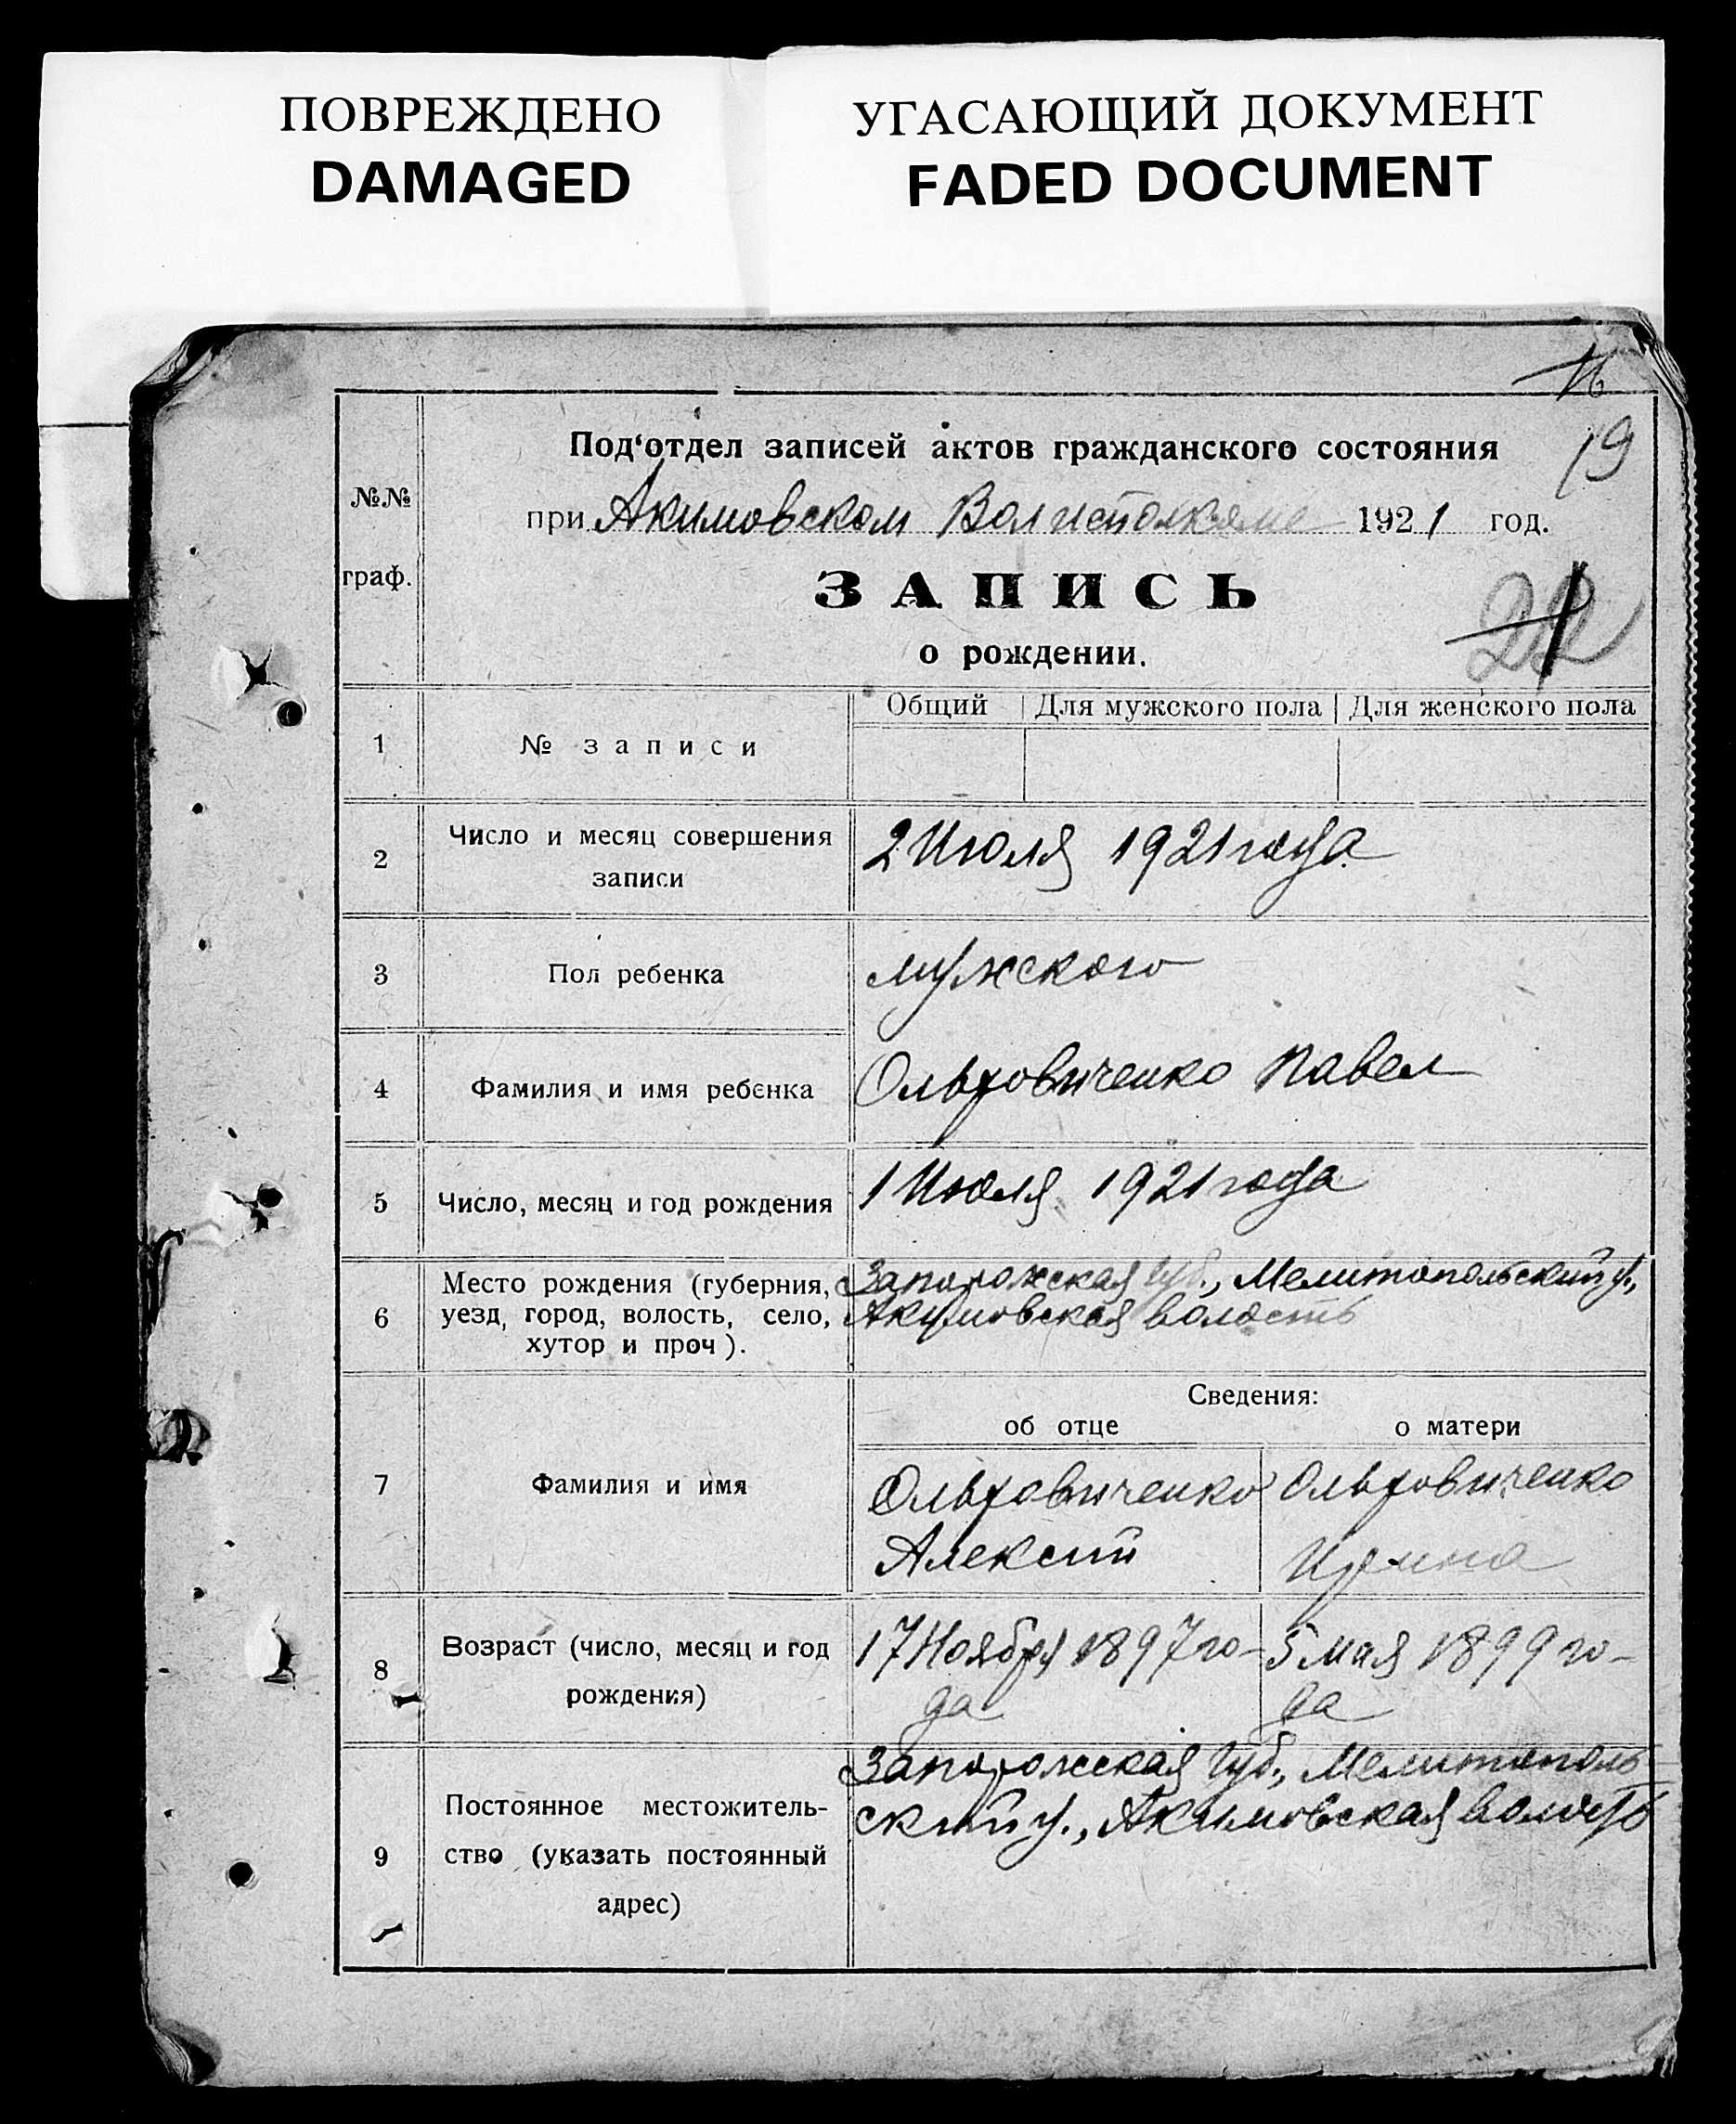 ПОВРЕЖДЕНО
DAMAGED
УГАСАЮЩИЙ ДОКУМЕНТ
FADED DOCUMENT
16
19
№№ граф.
Под‘отдел записей актов гражданского состояния
при Акимовском Волисполкоме 1921 год.
ЗАПИСЬ
о рождении.
Общий Для мужского пола Для женского пола
1 № записи
2 Число и месяц совершения записи
2 Июля 1921 года
3 Пол ребенка
мужского
4 Фамилия и имя ребенка
Ольховиченко Павел
5 Число, месяц и год рождения
1 Июля 1921 года
6 Место рождения (губерния,
уезд, город, волость, село,
хутор и проч).
Запорожская губ., Мелитопольский у.,
Акимовская волость
Сведения:
об отце о матери
7 Фамилия и имя
Ольховиченко
Алексий
Ольховиченко
Ирина
8 Возраст (число, месяц и год
рождения)
17 Ноября 1897 го-
да
5 мая 1899 го-
да
9 Постоянное местожитель-
ство (указать постоянный
адрес)
Запорожская губ., Мелитополь
ский у., Акимовская волость